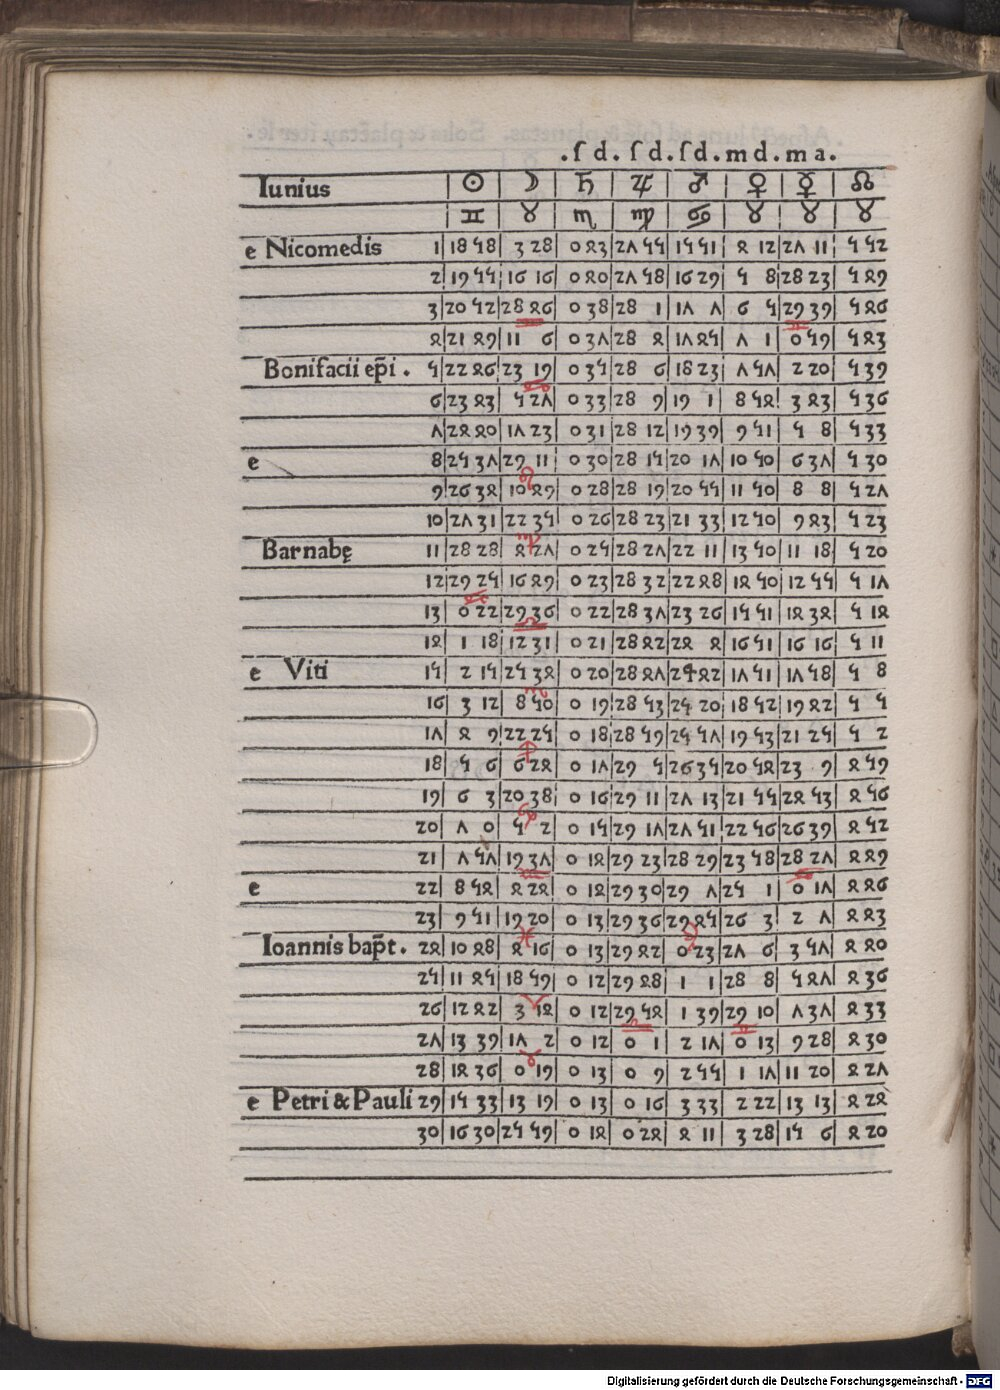 .ſ d. ſ d. ſ d. m d. m a.
Iunius ☉ ☽ ♄ ♃ ♂ ♀ ☿ ☊
♊ ♉ ♏ ♍ ♋ ♉ ♉ ♉
e Nicomedis 1 18 58 3 28 0 43 27 55 15 51 4 12 27 11 5 52
2 19 55 16 16 0 40 27 58 16 29 5 8 28 23 5 49
3 20 52 28 46 0 38 28 1 17 7 6 5 29 39 5 46
♊ ♊
4 21 49 11 6 0 37 28 4 17 45 7 1 0 59 5 43
Bonifacii ep̃i . 5 22 46 23 19 0 35 28 6 18 23 7 57 2 20 5 39
♋
6 23 43 5 27 0 33 28 9 19 1 8 54 3 43 5 36
7 24 40 17 23 0 31 28 12 19 39 9 51 5 8 5 33
e 8 25 37 29 11 0 30 28 15 20 17 10 50 6 37 5 30
♌
9 26 34 10 49 0 28 28 19 20 55 11 50 8 8 5 27
10 27 31 22 35 0 26 28 23 21 33 12 50 9 43 5 23
♍
Barnabę 11 28 28 4 27 0 25 28 27 22 11 13 50 11 18 5 20
12 29 25 16 49 0 23 28 32 22 48 14 50 12 55 5 17
♋
13 0 22 29 36 0 22 28 37 23 26 15 51 14 34 5 14
♎
14 1 18 12 31 0 21 28 42 24 4 16 51 16 16 5 11
e Viti 15 2 15 25 34 0 20 28 47 24 42 17 51 17 58 5 8
♏
16 3 12 8 50 0 19 28 53 25 20 18 52 19 42 5 5
17 4 9 22 25 0 18 28 59 25 57 19 53 21 25 5 2
♐
18 5 6 6 24 0 17 29 5 26 35 20 54 23 9 4 59
19 6 3 20 38 0 16 29 11 27 13 21 55 24 53 4 56
♑
20 7 0 5 2 0 15 29 17 27 51 22 56 26 39 4 52
21 7 57 19 37 0 14 29 23 28 29 23 58 28 27 4 49
♒ ♋
e 22 8 54 4 24 0 14 29 30 29 7 25 1 0 17 4 46
23 9 51 19 20 0 13 29 36 29 45 26 3 2 7 4 43
♓ ♌
Ioannis bap̃t . 24 10 48 4 16 0 13 29 42 0 23 27 6 3 57 4 40
25 11 45 18 59 0 12 29 48 1 1 28 8 5 47 4 36
♈
26 12 42 3 14 0 12 29 54 1 39 29 10 7 37 4 33
♎ ♊
27 13 39 17 2 0 12 0 1 2 17 0 13 9 28 4 30
♉
28 14 36 0 19 0 13 0 9 2 55 1 17 11 20 4 27
e Petri & Pauli 29 15 33 13 19 0 13 0 16 3 33 2 22 13 13 4 24
30 16 30 25 59 0 14 0 24 4 11 3 28 15 6 4 20
Digitalisierung gefördert durch die Deutsche Forschungsgemeinschaft - DFG